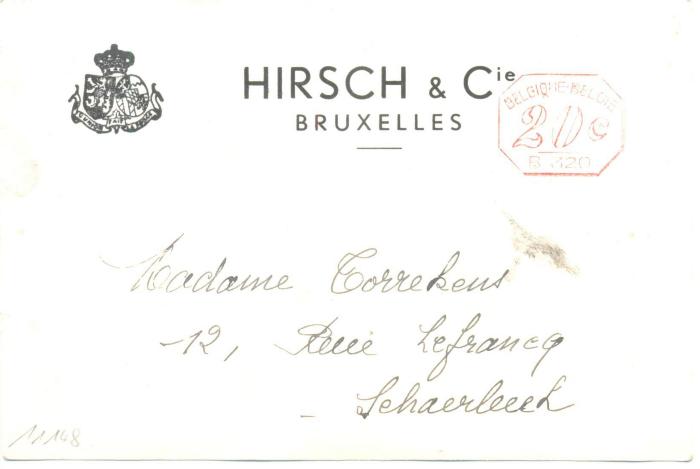 HIRSCH & Cie
BRUXELLES
BELGIQUE-BELGIE
20c
B 320
Madame Torrekens
-12, Rue Lefrancq
- Schaerbeek
11148